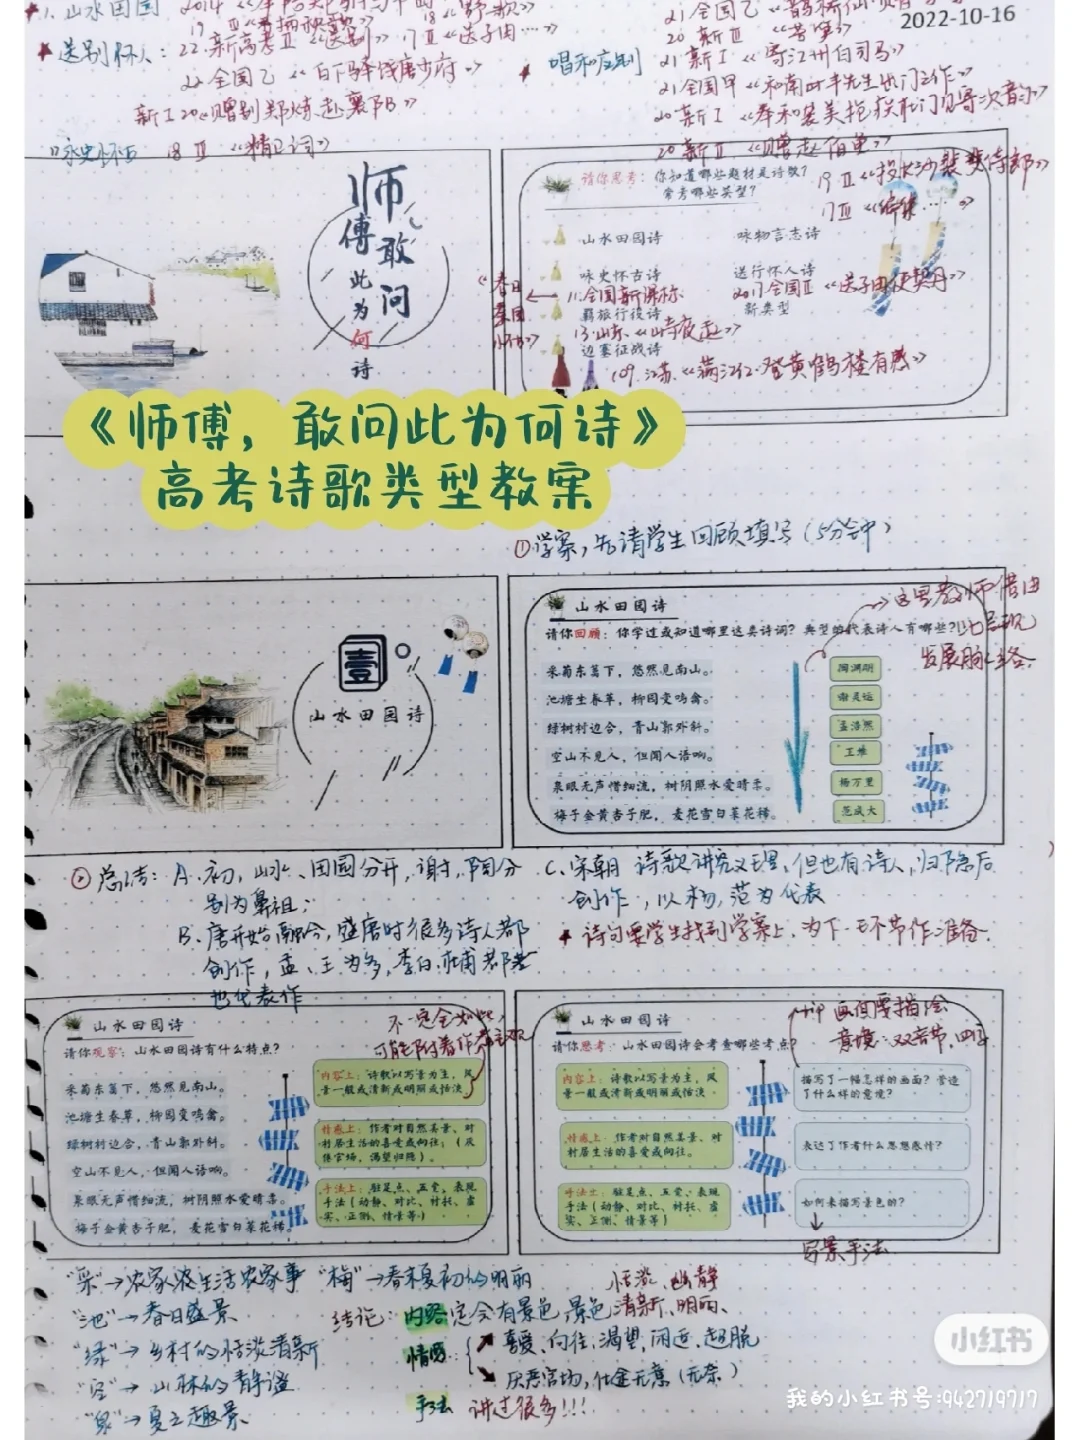 1. 山水田园
2022-10-16
送别怀人：22.新高考Ⅱ《送别》 17Ⅱ《送子由……》
唱和应制
22全国乙《白下驿饯唐少府》
21新Ⅰ《寄江州白司马》
新Ⅰ20《赠别郑炼赴襄阳》
咏史怀古 18Ⅲ《精卫词》
20新Ⅱ《赠赵伯鱼》
师傅敢问此为何诗
请你思考：你知道哪些题材是诗歌？常考哪些类型？
山水田园诗
咏物言志诗
咏史怀古诗
送行怀人诗
《春日
11.全国新课标
羁旅行役诗
新类型
13.山东.《山寺夜起》
边塞征战诗
09.江苏.《满江红·登黄鹤楼有感》
《师傅，敢问此为何诗》
高考诗歌类型教案
①学案，先请学生回顾填写（5分钟）
壹
山水田园诗
山水田园诗
请你回顾：你学过或知道哪里这类诗词？典型的代表诗人有哪些？
这里教师借由
发展脉络.
采菊东篱下，悠然见南山。
池塘生春草，柳园变鸣禽。
绿树村边合，青山郭外斜。
空山不见人，但闻人语响。
泉眼无声惜细流，树阴照水爱晴柔。
梅子金黄杏子肥，麦花雪白菜花稀。
陶渊明
谢灵运
孟浩然
王维
杨万里
范成大
总结：A.初，山水、田园分开，谢、陶分
别为鼻祖；
B、唐开始融合，盛唐时很多诗人都
创作，孟、王为多，李白.杜甫都差
也代表作
C、宋朝 诗歌讲究义理，但也有诗人，归隐后
创作，以杨，范为代表
★诗句要学生找到学案上，为下一环节作准备.
山水田园诗
不一定全如此，
请你观察：山水田园诗有什么特点？
采菊东篱下，悠然见南山。
池塘生春草，柳园变鸣禽。
绿树村边合，青山郭外斜。
空山不见人，但闻人语响。
泉眼无声惜细流，树阴照水爱晴柔。
梅子金黄杏子肥，麦花雪白菜花稀。
内容上：诗歌以写景为主，风景一般或清新或明丽或恬淡
情感上：作者对自然美景、对村居生活的喜爱或向往；（厌倦官场，渴望归隐）。
手法上：驻足点、五觉、表现手法（动静、对比、衬托、虚实、正侧、情景等）
山水田园诗
画面要描绘
请你思考：山水田园诗会考查哪些考点？
内容上：诗歌以写景为主，风景一般或清新或明丽或恬淡
情感上：作者对自然美景、对村居生活的喜爱或向往。
手法上：驻足点、五觉、表现手法（动静、对比、衬托、虚实、正侧、情景等）
描写了一幅怎样的画面？营造了什么样的意境？
表达了作者什么思想感情？
如何来描写景色的？
写景手法
"采"→农家浓生活农家事
"池"→春日盛景
"绿"→乡村的恬淡清新
"空"→山林的静谧
"泉"→夏之趣景
"梅"→春末夏初的明丽
恬淡、幽静
结论：内容 定会有景色，景色 清新、明丽、
情感：喜爱、向往、渴望、闲适、超脱
厌恶官场，仕途无意（无奈）
手法 讲过很多！！！
小红书
我的小红书号:942719717